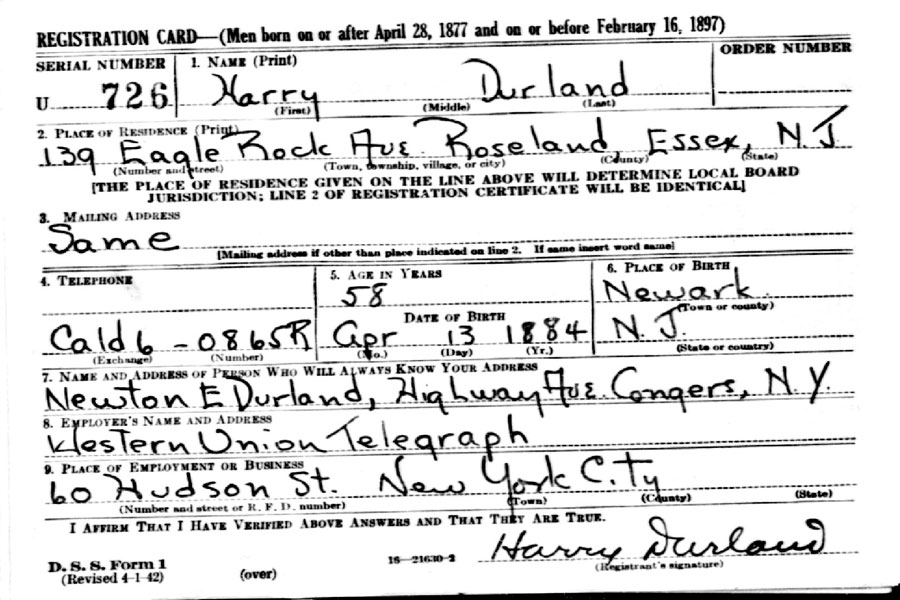 REGISTRATION CARD—(Men born on or after April 28, 1877 and on or before February 16, 1897)
SERIAL NUMBER 1. NAME (Print) ORDER NUMBER
U 726 Harry Durland
(First) (Middle) (Last)
2. PLACE OF RESIDENCE (Print)
139 Eagle Rock Ave. Roseland, Essex, N.J
(Number and street) (Town, township, village, or city) (County) (State)
[THE PLACE OF RESIDENCE GIVEN ON THE LINE ABOVE WILL DETERMINE LOCAL BOARD
JURISDICTION; LINE 2 OF REGISTRATION CERTIFICATE WILL BE IDENTICAL]
3. MAILING ADDRESS
Same
[Mailing address if other than place indicated on line 2. If same insert word same]
4. TELEPHONE 5. AGE IN YEARS 6. PLACE OF BIRTH
58 Newark
DATE OF BIRTH (Town or county)
Cald 6 - 0865R Apr 13 1884 N.J.
(Exchange) (Number) (Mo.) (Day) (Yr.) (State or country)
7. NAME AND ADDRESS OF PERSON WHO WILL ALWAYS KNOW YOUR ADDRESS
Newton E Durland, Highway Ave. Congers, N.Y.
8. EMPLOYER'S NAME AND ADDRESS
Western Union Telegraph
9. PLACE OF EMPLOYMENT OR BUSINESS
60 Hudson St. New York City
(Number and street or R. F. D. number) (Town) (County) (State)
I AFFIRM THAT I HAVE VERIFIED ABOVE ANSWERS AND THAT THEY ARE TRUE.
D. S. S. Form 1 16—21630-2 Harry Durland
(Revised 4-1-42) (over) (Registrant's signature)